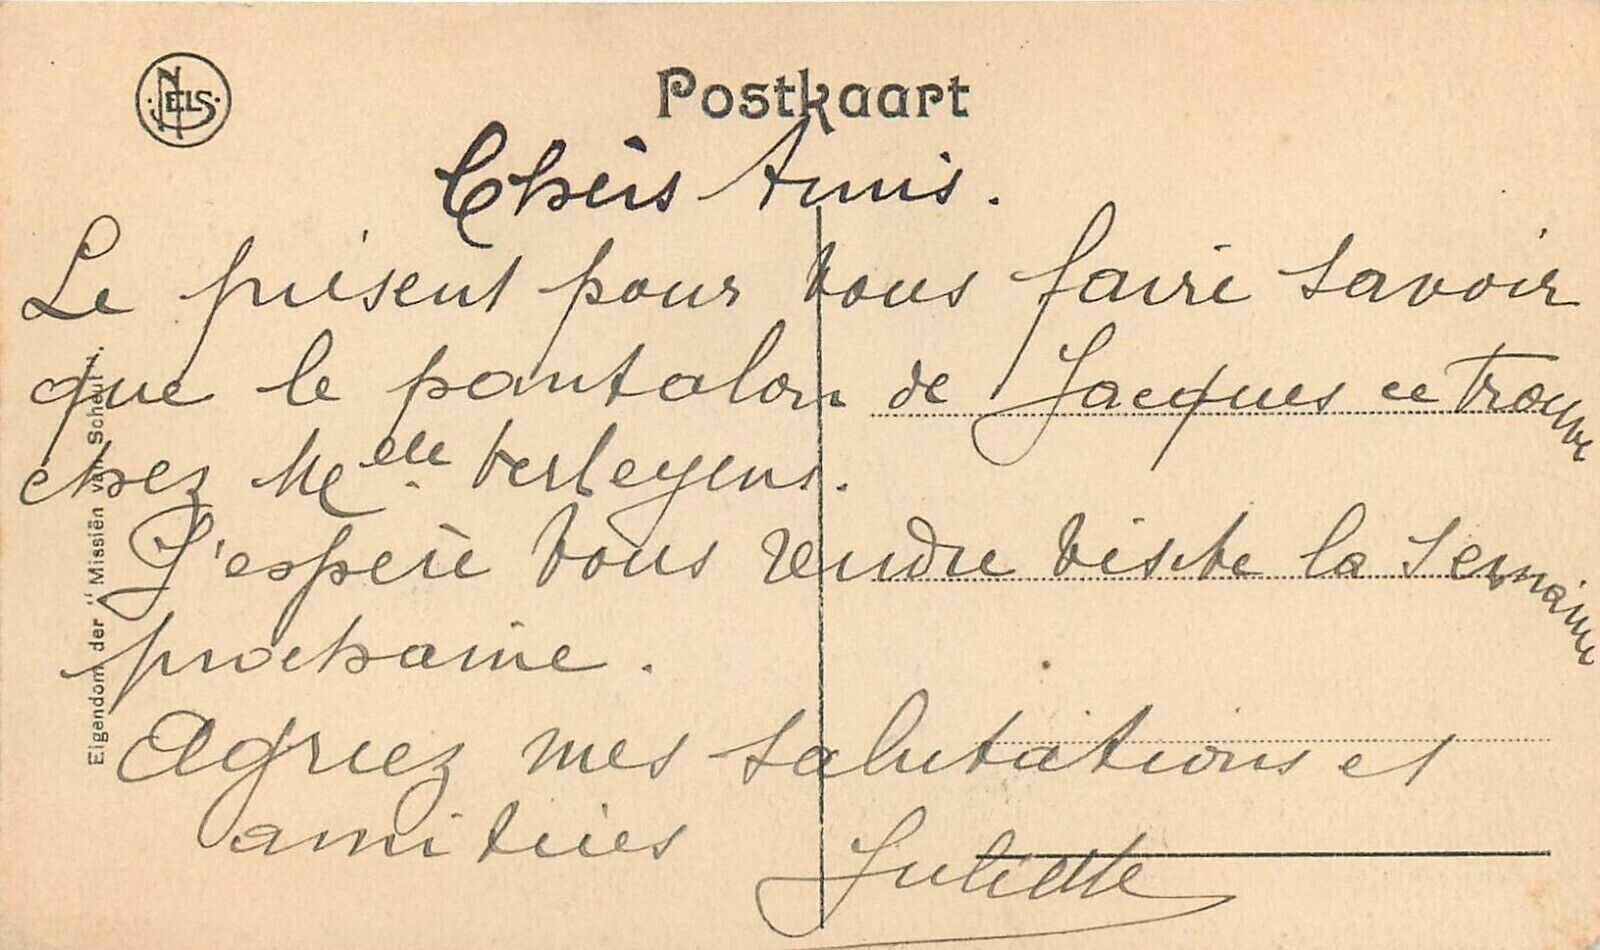 NELS
Postkaart
Chèrs Amis.
Le présent pour vous faire savoir
que le pantalon de Jacques ce trouve
chez Melle Verleyens.
J'espère vous rendre visite la semaine
prochaine.
Agréez mes salutations et
amitiées Juliette
Eigendom der "Missiën van Scheut".